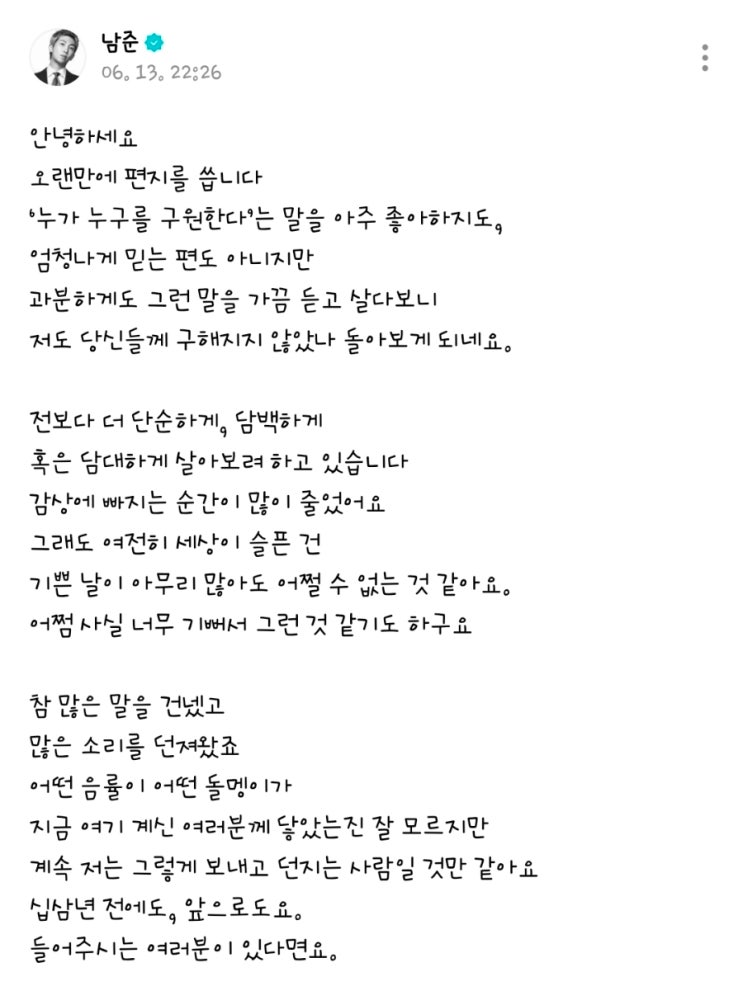 남준
06. 13. 22:26
안녕하세요
오랜만에 편지를 씁니다
'누가 누구를 구원한다'는 말을 아주 좋아하지도,
엄청나게 믿는 편도 아니지만
과분하게도 그런 말을 가끔 듣고 살다보니
저도 당신들께 구해지지 않았나 돌아보게 되네요.
전보다 더 단순하게, 담백하게
혹은 담대하게 살아보려 하고 있습니다
감상에 빠지는 순간이 많이 줄었어요
그래도 여전히 세상이 슬픈 건
기쁜 날이 아무리 많아도 어쩔 수 없는 것 같아요.
어쩜 사실 너무 기뻐서 그런 것 같기도 하구요
참 많은 말을 건넸고
많은 소리를 던져왔죠
어떤 음률이 어떤 돌멩이가
지금 여기 계신 여러분께 닿았는진 잘 모르지만
계속 저는 그렇게 보내고 던지는 사람일 것만 같아요
십삼년 전에도, 앞으로도요.
들어주시는 여러분이 있다면요.